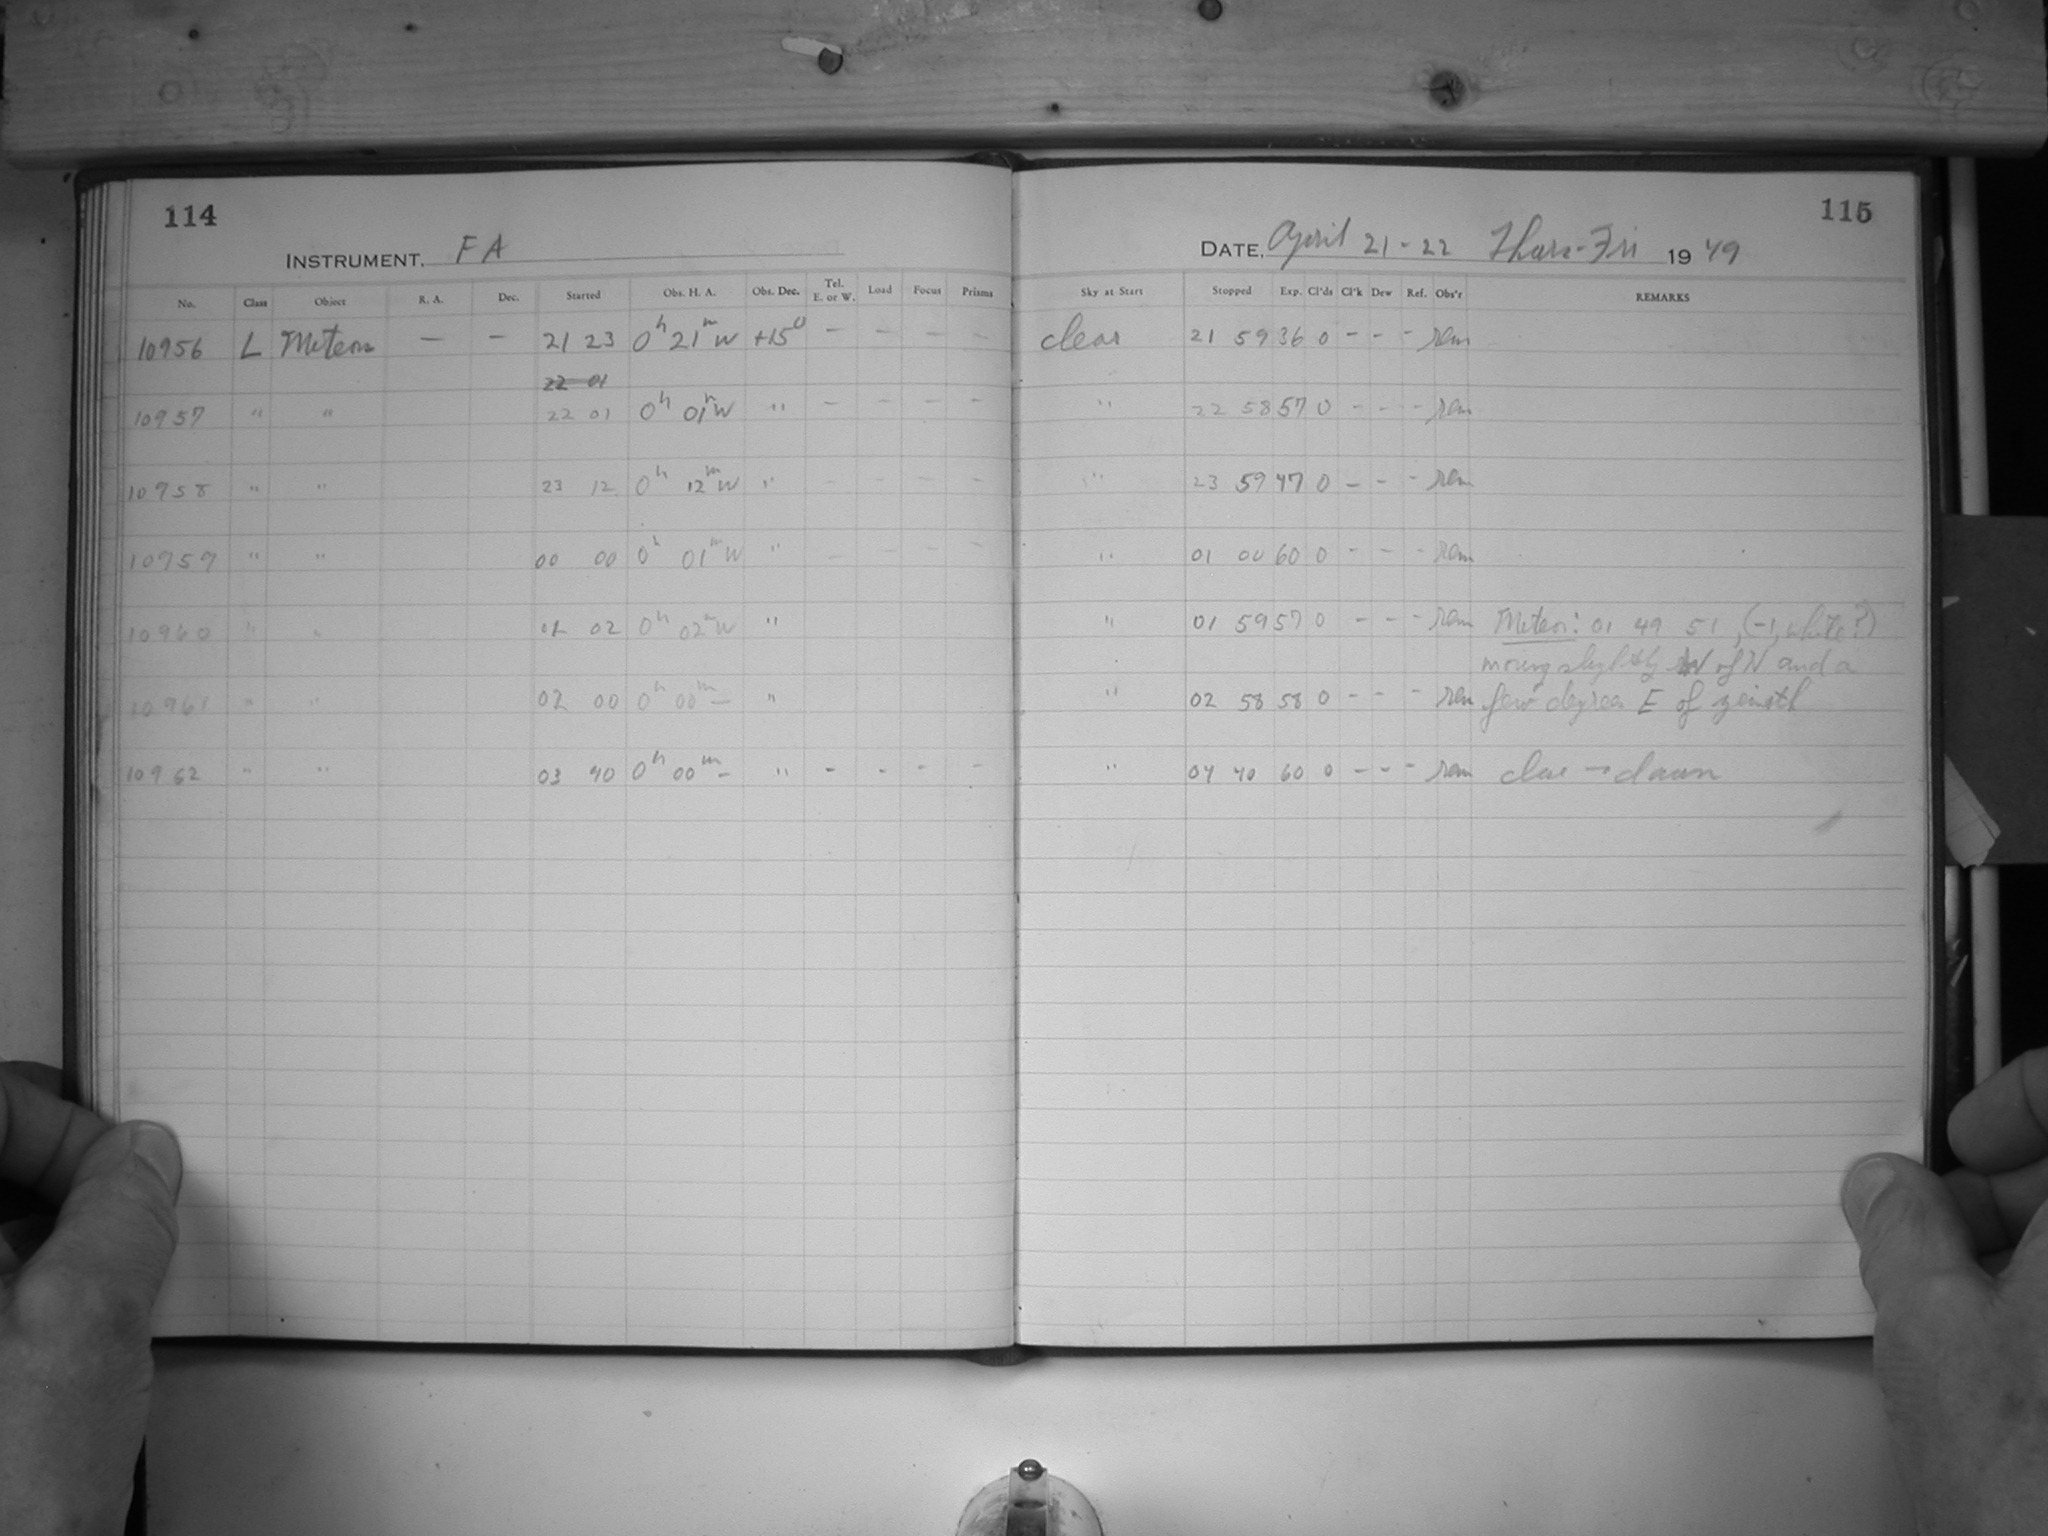 114
INSTRUMENT, F A
No. Class Object R. A. Dec. Started Obs. H. A. Obs. Dec. Tel. E. or W. Load Focus Prisms
10956 L Meteors — — 21 23 0h 21m W +15° — — — —
22 01
10957 " " 22 01 0h 01m W " — — — —
10958 " " 23 12 0h 12m W " — — — —
10959 " " 00 00 0h 01m W " — — — —
10960 " " 01 02 0h 02m W "
10961 " " 02 00 0h 00m — "
10962 " " 03 40 0h 00m — " - - - -
115
DATE, April 21-22 Thurs-Fri 1949
Sky at Start Stopped Exp. Cl'ds Cl'k Dew Ref. Obs'r REMARKS
clear 21 59 36 0 - - - rem
" 22 58 57 0 - - - rem
" 23 59 47 0 - - - rem
" 01 00 60 0 - - - rem
" 01 59 57 0 - - - rem Meteor: 01 49 51, (-1, white?)
moving slightly W of N and a
" 02 58 58 0 - - - rem few degrees E of zenith
" 04 40 60 0 - - - rem close — dawn